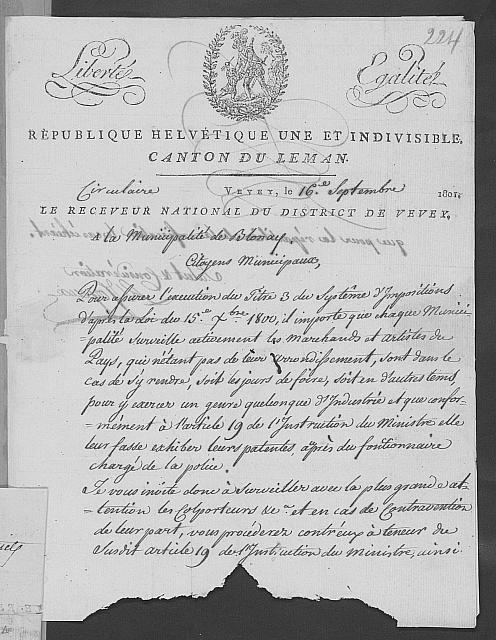 224
Liberté Egalité
RÉPUBLIQUE HELVÉTIQUE UNE ET INDIVISIBLE.
CANTON DU LEMAN.
Circulaire VEVEY, le 16.e Septembre 1801.
LE RECEVEUR NATIONAL DU DISTRICT DE VEVEY,
A la Municipalité de Blonay
Citoyens Municipaux,
Pour assurer l'execution du Titre 3 du Systême d'Impositions
d'après la Loi du 15.e Xbre 1800, il importe que chaque Munici
=palité Surveille activement les Marchands et artistes du
Pays, qui n'étant pas de leur arrondissement, sont dans le
Cas de S'y rendre, soit les jours de foire, soit en d'autres tems,
pour y exercer un genre quelconque d'Industrie et que confor-
=mément à l'article 19 de l'Instruction du Ministre elle
leur fasse exhiber leurs patentes après du fontionnaire
chargé de la police.
Je vous invite donc à Surveiller avec la plus grande at-
=tention les Colporteurs &c.a et en cas de Contravention
de leur part, vous procederez contr'eux à teneur du
Susdit article 19 de l'Instruction du Ministre, ainsi